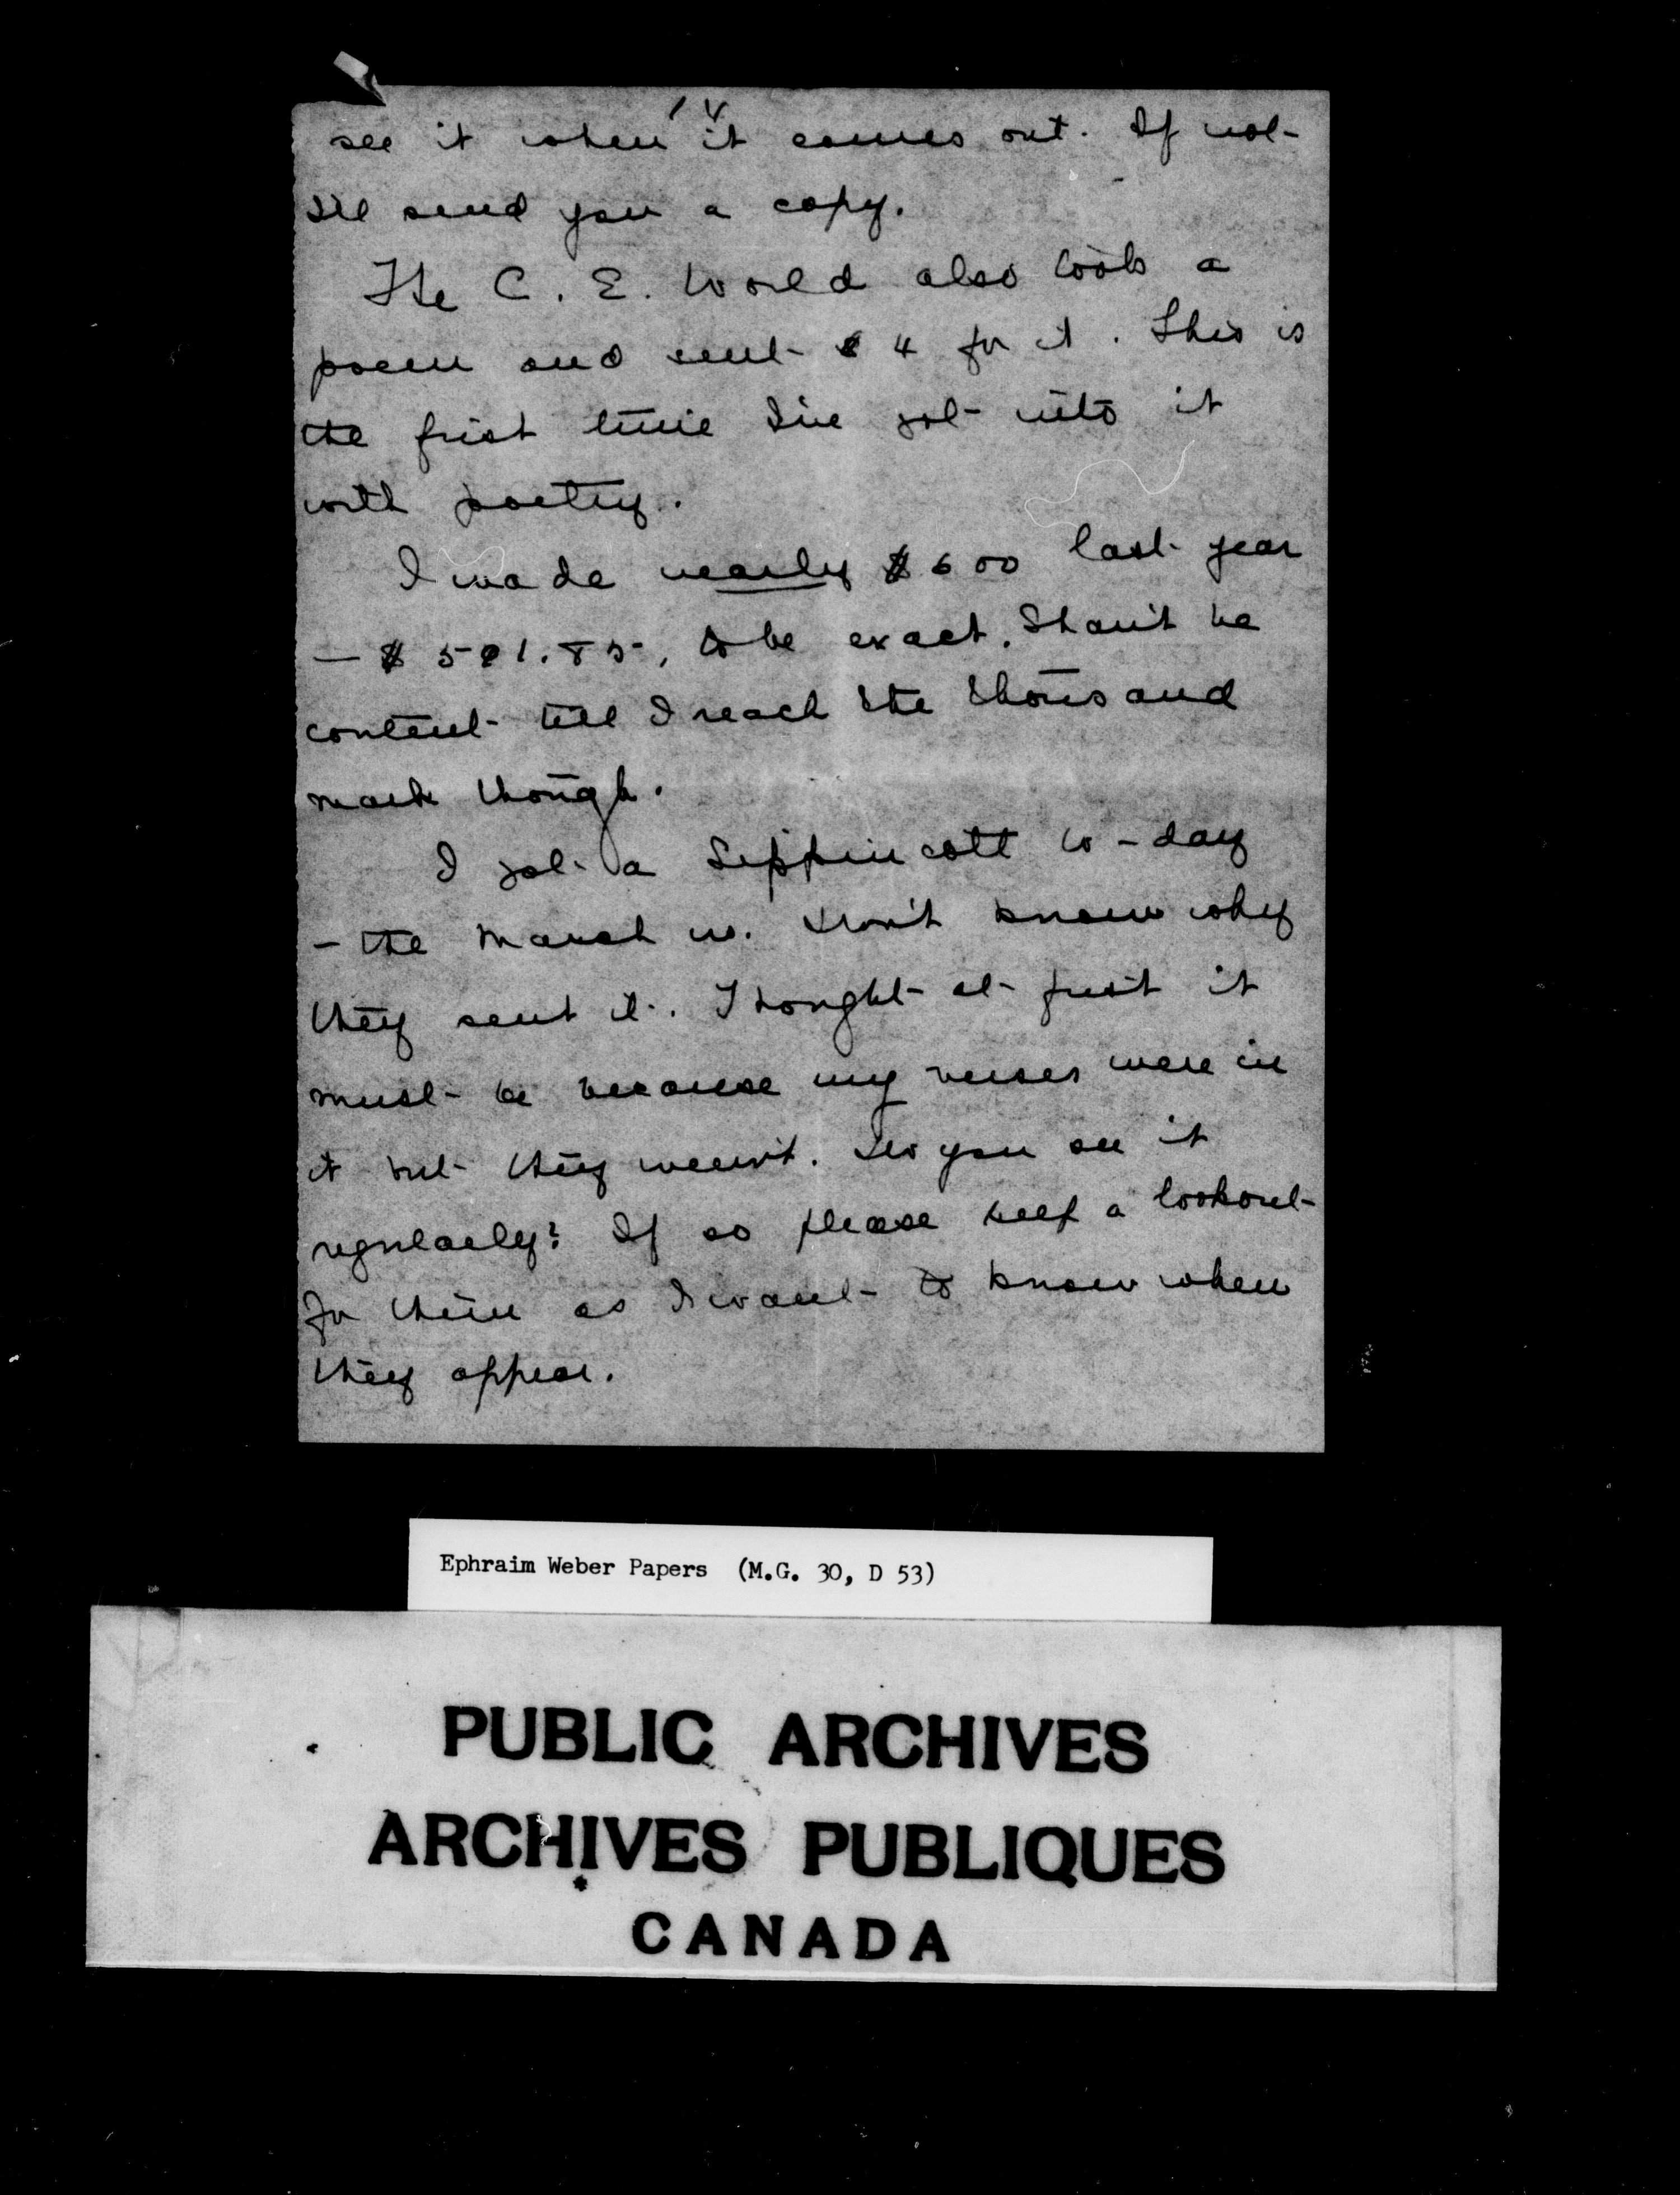 14
see it when it comes out. If not
I'll send you a copy.
The C. E. World also took a
poem and sent $4 for it. This is
the first time I've got into it
with poetry.
I made nearly $600 last year
— $591.85, to be exact. Shan't be
content till I reach the thousand
mark though.
I got a Lippincott to-day
- the March no. Don't know why
they sent it. Thought at first it
must be because my verses were in
it but they weren't. Do you see it
regularly? If so please keep a lookout
for them as I want to know when
they appear.
Ephraim Weber Papers (M.G. 30, D 53)
PUBLIC ARCHIVES
ARCHIVES PUBLIQUES
CANADA